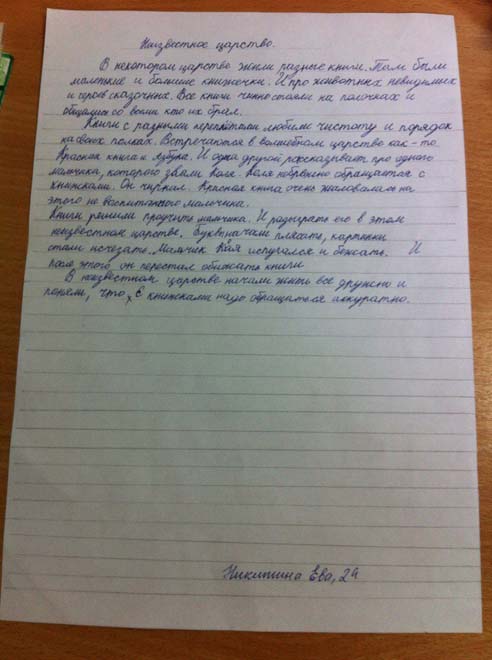 Неизвестное царство.
В некотором царстве жили разные книги. Там были
маленькие и большие книжечки. И про животных невидимых
и героев сказочных. Все книги чинно стояли на полочках и
общались со всеми кто их брал.
Книги с разными переплётами любили чистоту и порядок
на своих полках. Встречаются в волшебном царстве как-то
Красная книга и Азбука. И одна другой рассказывает про одного
мальчика, которого звали Коля. Коля небрежно обращается с
книжками. Он чиркал. Красная книга очень жаловалась на
этого не воспитанного мальчика.
Книги решили проучить мальчика. И разыграть его в этом
неизвестном царстве. Буквы начали плясать, картинки
стали исчезать. Мальчик Коля испугался и бежать. И
после этого, он перестал обижать книги
В неизвестном царстве начали жить все дружно и
поняли, что, с книжками надо обращаться аккуратно.
Никитина Ева, 2ч